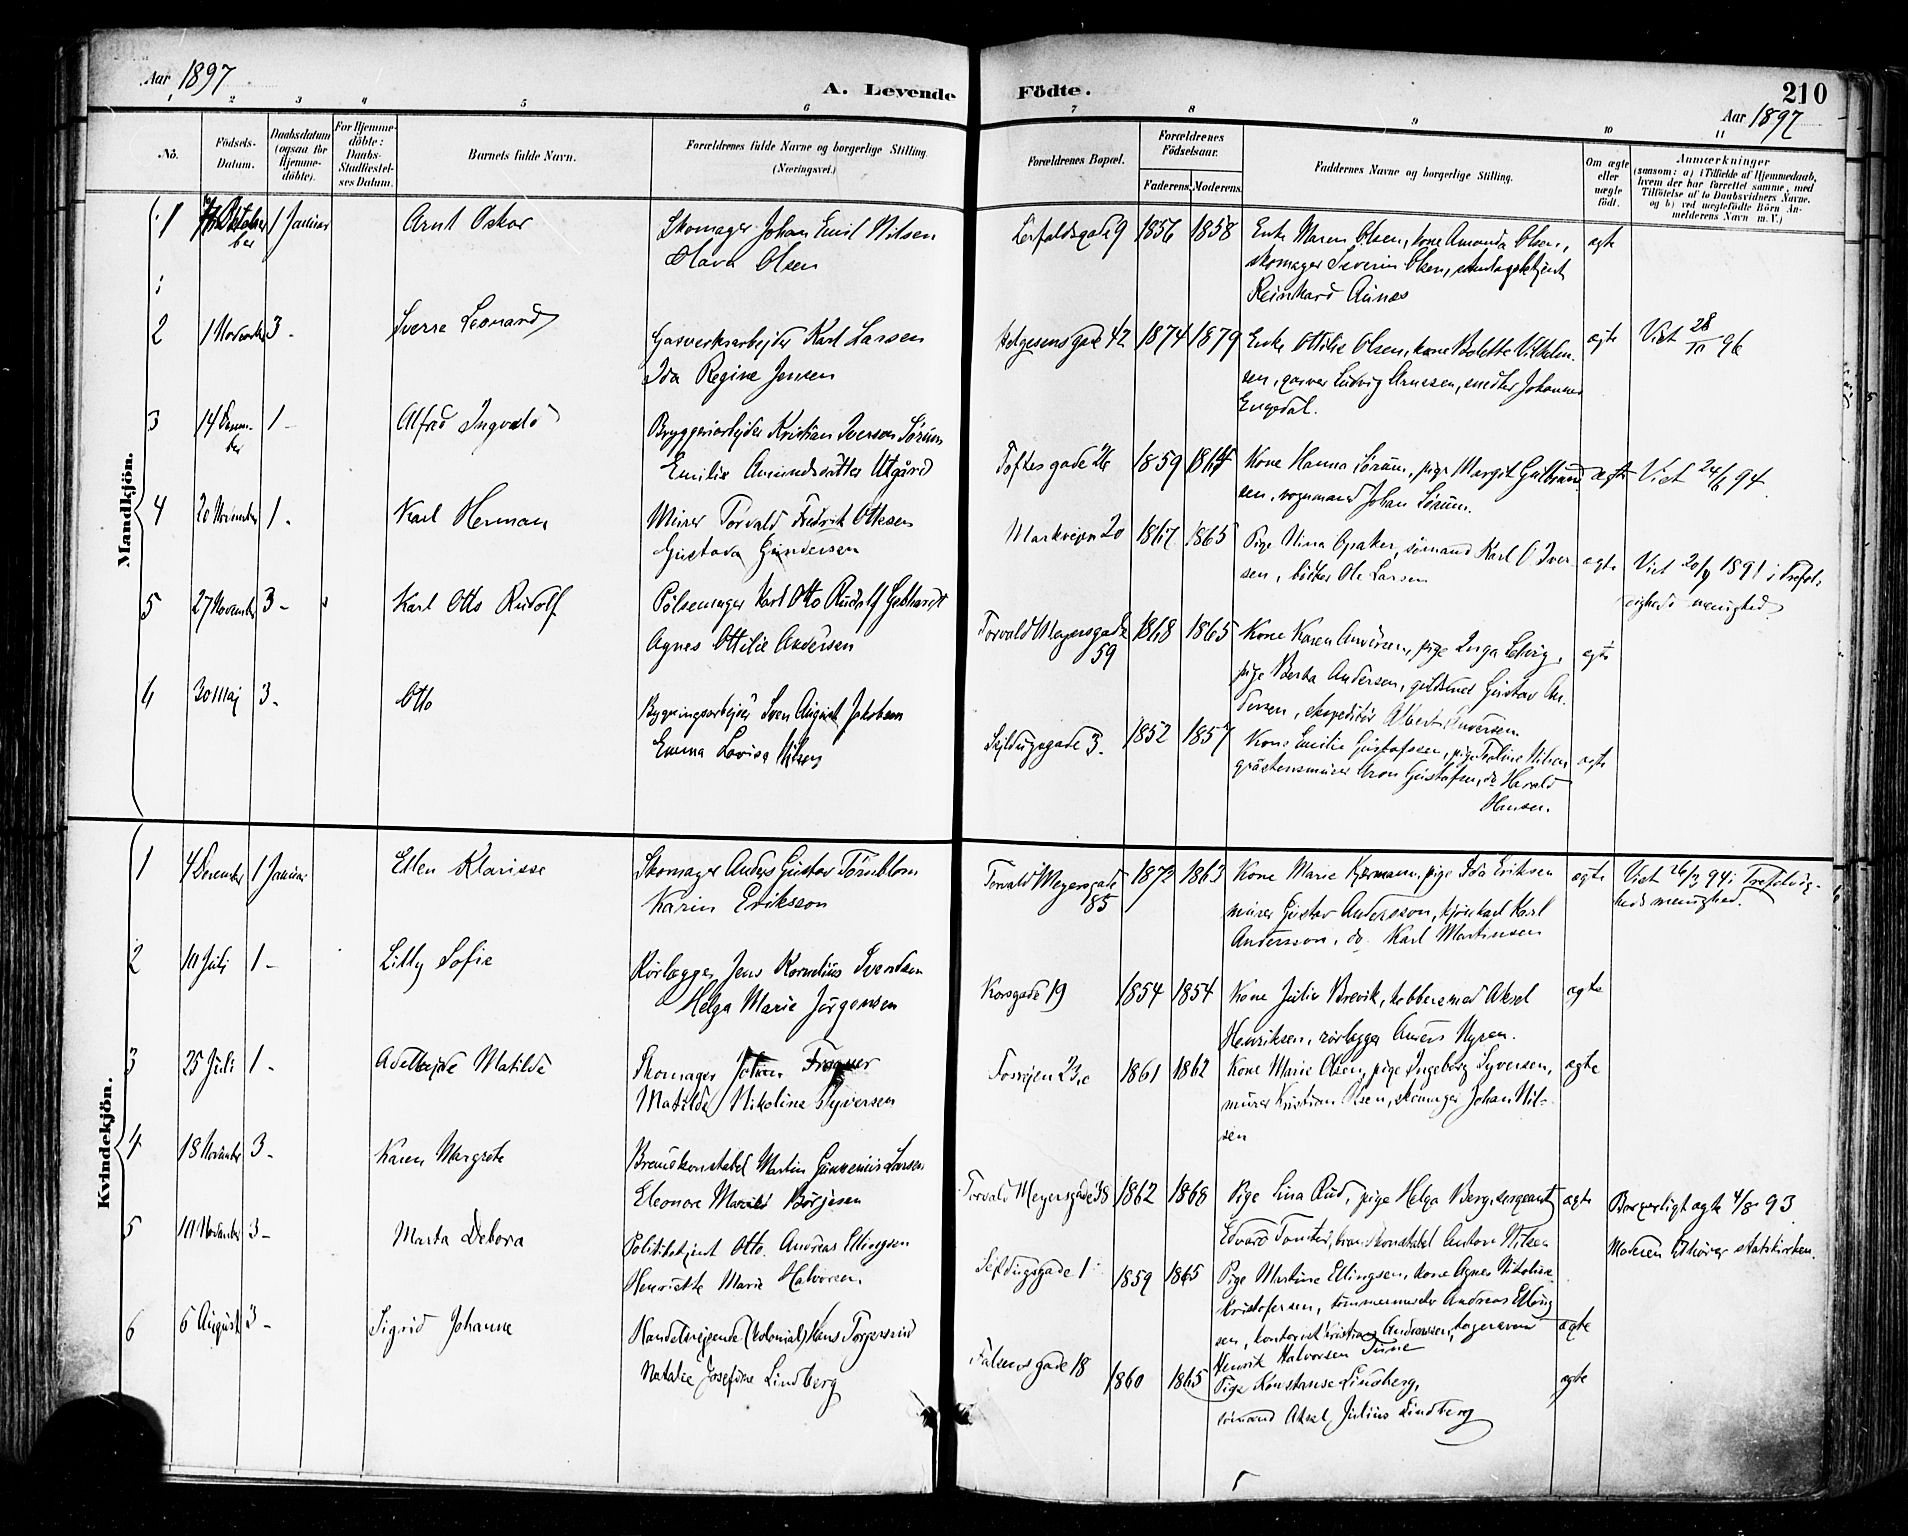 Aar 1897
A. Levende Födte.
210
Aar 1897
1 2 3 4 5 6 7 8 9 10 11
No.
Födsels-
Datum.
Daabsdatum
(ogsaa for
Hjemme-
döbte).
For Hjemme-
döbte:
Daabs-
Stadfæstel-
ses Datum.
Barnets fulde Navn.
Forældrenes fulde Navne og borgerlige Stilling
(Næringsvei.)
Forældrenes Bopæl.
Forældrenes
Födselsaar.
Faderens. Moderens.
Faddernes Navne og borgerlige Stilling.
Om ægte
eller
uægte
födt.
Anmærkninger
(saasom: a) i Tilfælde af Hjemmedaab,
hvem der har forrettet samme, med
Tilföielse af to Daabsvidners Navne,
og b) ved uægtefödte Börn An-
melderens Navn m. V.)
Mandkjön.
1 Oktober 1 Januar Arnt Oskar Skomager Johan Emil Nilsen
Olava Olsen
Lerfaldsgade 9 1856 1858 Enke Maren Olsen, kone Amanda Olsen,
skomager Severin Olsen,
Reinhard Aunes
ægte
2 1 November 3 - Sverre Leonard Gasverksarbejder Karl Larsen
Ida Regine Jensen
Helgesensgade 42 1874 1879 Enke Ottilie Olsen, kone Bolette Vilhelm-
sen, garver Ludvig Arnesen, smedker Johannes
Engedal.
ægte Viet 28/11 96
3 14 Decem-
ber 1 - Alfred Ingvald Bryggeriarbejder Kristian Iverson Sörum
Emilie Amundsdatter Utgård
Toftes gade 26 1859 Kone Hanna Sörum, pige Margit Gulbrand-
sen, vognmand Johan Sörum.
ægte Viet 24/6 94.
4 20 November 1 - Karl Herman Murer Torvald Fredrik Ottesen
Gustava Gundersen
Markvejen 20 1867 1865 Pige Nina Opaker, sömand Karl O Iver-
sen, bödker Ole Larsen
ægte Viet 20/9 1891 i Trefol-
digheds menighed
5 27 November 3 - Karl Otto Rudolf Pölsemager Karl Otto Rudolf Gebhardt
Agnes Ottilie Andersen
Torvald Meyersgade
59 1868 1865 Kone Karen Andersen, pige Inga Solvig,
pige Berta Andersen, guldsmed Gustav An-
dersen, ekspeditör Albert Andersen
ægte
6 30 Maj 3 - Otto Bygningsarbejder Sven August Jakobsen
Emma Lovisa Nilsen
Seildugsgade 3. 1852 1857 Kone Emilie Gustafssen, pige Nilsen
gråstensmurer Aron Gustafsen, do Harald
Hansen.
ægte
Kvindekjön.
1 4 December 1 Januar Ellen Klarisse Skomager Anders Gustav Törnblom
Karin Eriksson
Torvald Meyersgade
85 1872 1863 Kone Marie Hermann, pige Ida Eriksen
murer Gustav Andersson, Karl
Andersson, do Karl Martinsen
ægte Viet 26/3 94 i Trefoldig-
heds menighed.
2 10 Juli 1 - Lilly Sofie Rörlægger Jens Kornelius Svendsen
Helga Marie Jörgensen
Korsgade 19 1854 1854 Kone Julie Brevik, kobbersmed Aksel
Henriksen, rörlægger Anders Nyren.
ægte
3 25 Juli 1 - Adelhejde Matilde Skomager Johan Frogner
Matilde Nikoline Syversen
Fossvejen 23c 1861 1862 Kone Marie Olsen, pige Ingeborg Syversen,
murer Kristian Olsen, skomager Johan Nil-
sen
ægte
4 18 November 3 - Karen Margrete Brandkonstabel Martin Gunnenius Larsen
Eleonore Börjesen
Torvald Meyersgade 38 1862 1868 Pige Lina Rud, pige Helga Berg, sergeant
Edvard Tomter, brandkonstabel Anton Nilsen
ægte Borgerligt ægte 4/8 93.
Moderen tilhörer statskirken.
5 10 November 3 - Marta Debora Politibetjent Otto Andreas Ellingsen
Henriette Marie Halvorsen.
Seildugsgade 1 1859 1865 Pige Martine Ellingsen, kone Agnes Nikoline
Kristofersen, tömmermester Andreas Elling-
sen, kontorist Kristian Andreassen,
Henrik Halvorsen Turne
ægte
6 6 August 3 - Sigrid Johanne Handelsrejsende (kolonial) Hans Torgersrud
Natalie Josefine Lindberg
Falsensgade 18 1860 1865 Pige Konstanse Lindberg,
sömand Aksel Julius Lindberg
ægte